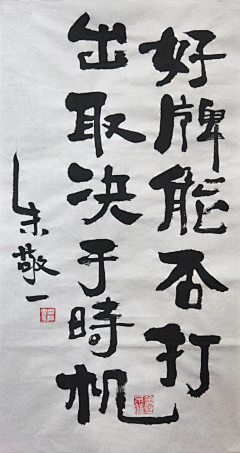 好牌能否打
出取决于時机
朱敬一